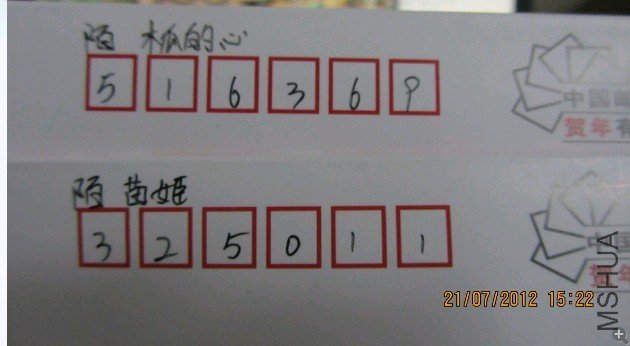 陌 木瓜的心
516369
中国邮
贺年有
陌 苗姬
325011
中国
贺年
21/07/2012 15:22
MSHUA